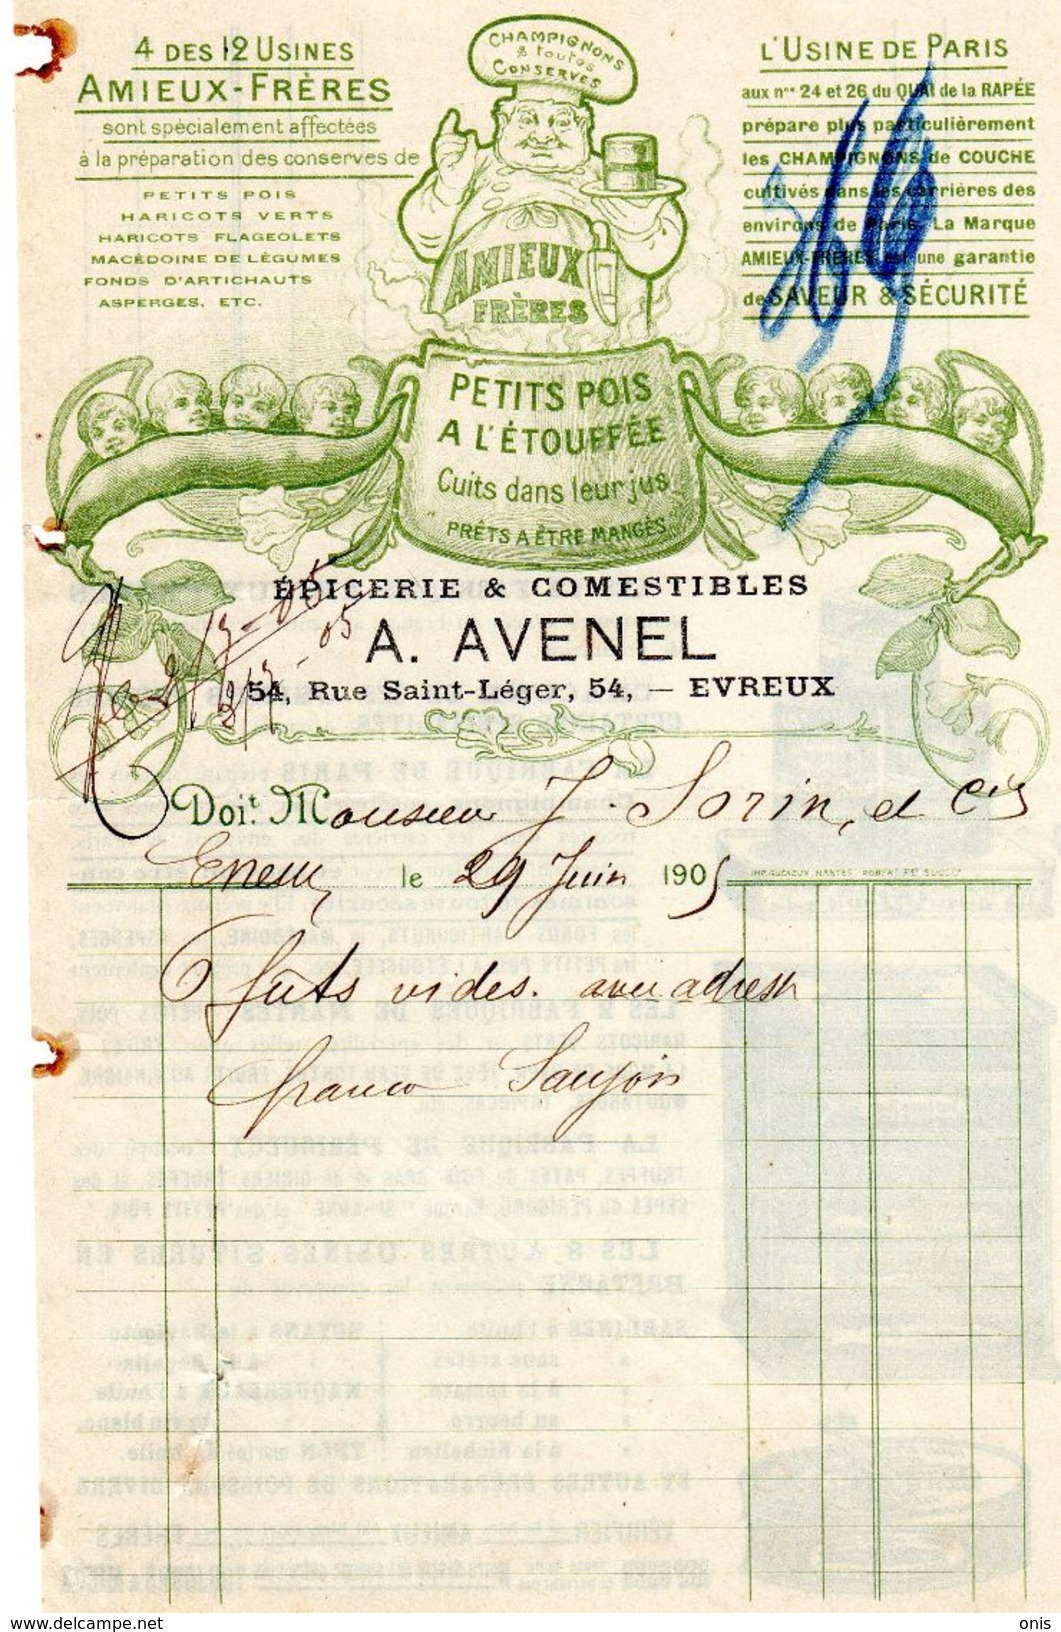 CHAMPIGNONS
& toutes
CONSERVES
4 DES 12 USINES
AMIEUX-FRÈRES
sont spécialement affectées
à la préparation des conserves de
PETITS POIS
HARICOTS VERTS
HARICOTS FLAGEOLETS
MACÉDOINE DE LÉGUMES
FONDS D'ARTICHAUTS
ASPERGES, ETC.
L'USINE DE PARIS
aux nos 24 et 26 du QUAI de la RAPÉE
prépare plus particulièrement
les CHAMPIGNONS de COUCHE
cultivés dans les carrières des
environs de Paris. La Marque
AMIEUX-FRÈRES est une garantie
de SAVEUR & SÉCURITÉ
AMIEUX
FRÈRES
PETITS POIS
A L'ÉTOUFFÉE
Cuits dans leur jus
PRÊTS A ÊTRE MANGÉS
ÉPICERIE & COMESTIBLES
A. AVENEL
54, Rue Saint-Léger, 54, — EVREUX
Doit Monsieur J. Sorin, et Cie
Evreux le 29 Juin 1905
IMP. GUÉNEUX, NANTES. ROBERT Fes SUCCrs
6 fûts vides. avec adresse
franco Saujon
www.delcampe.net
onis